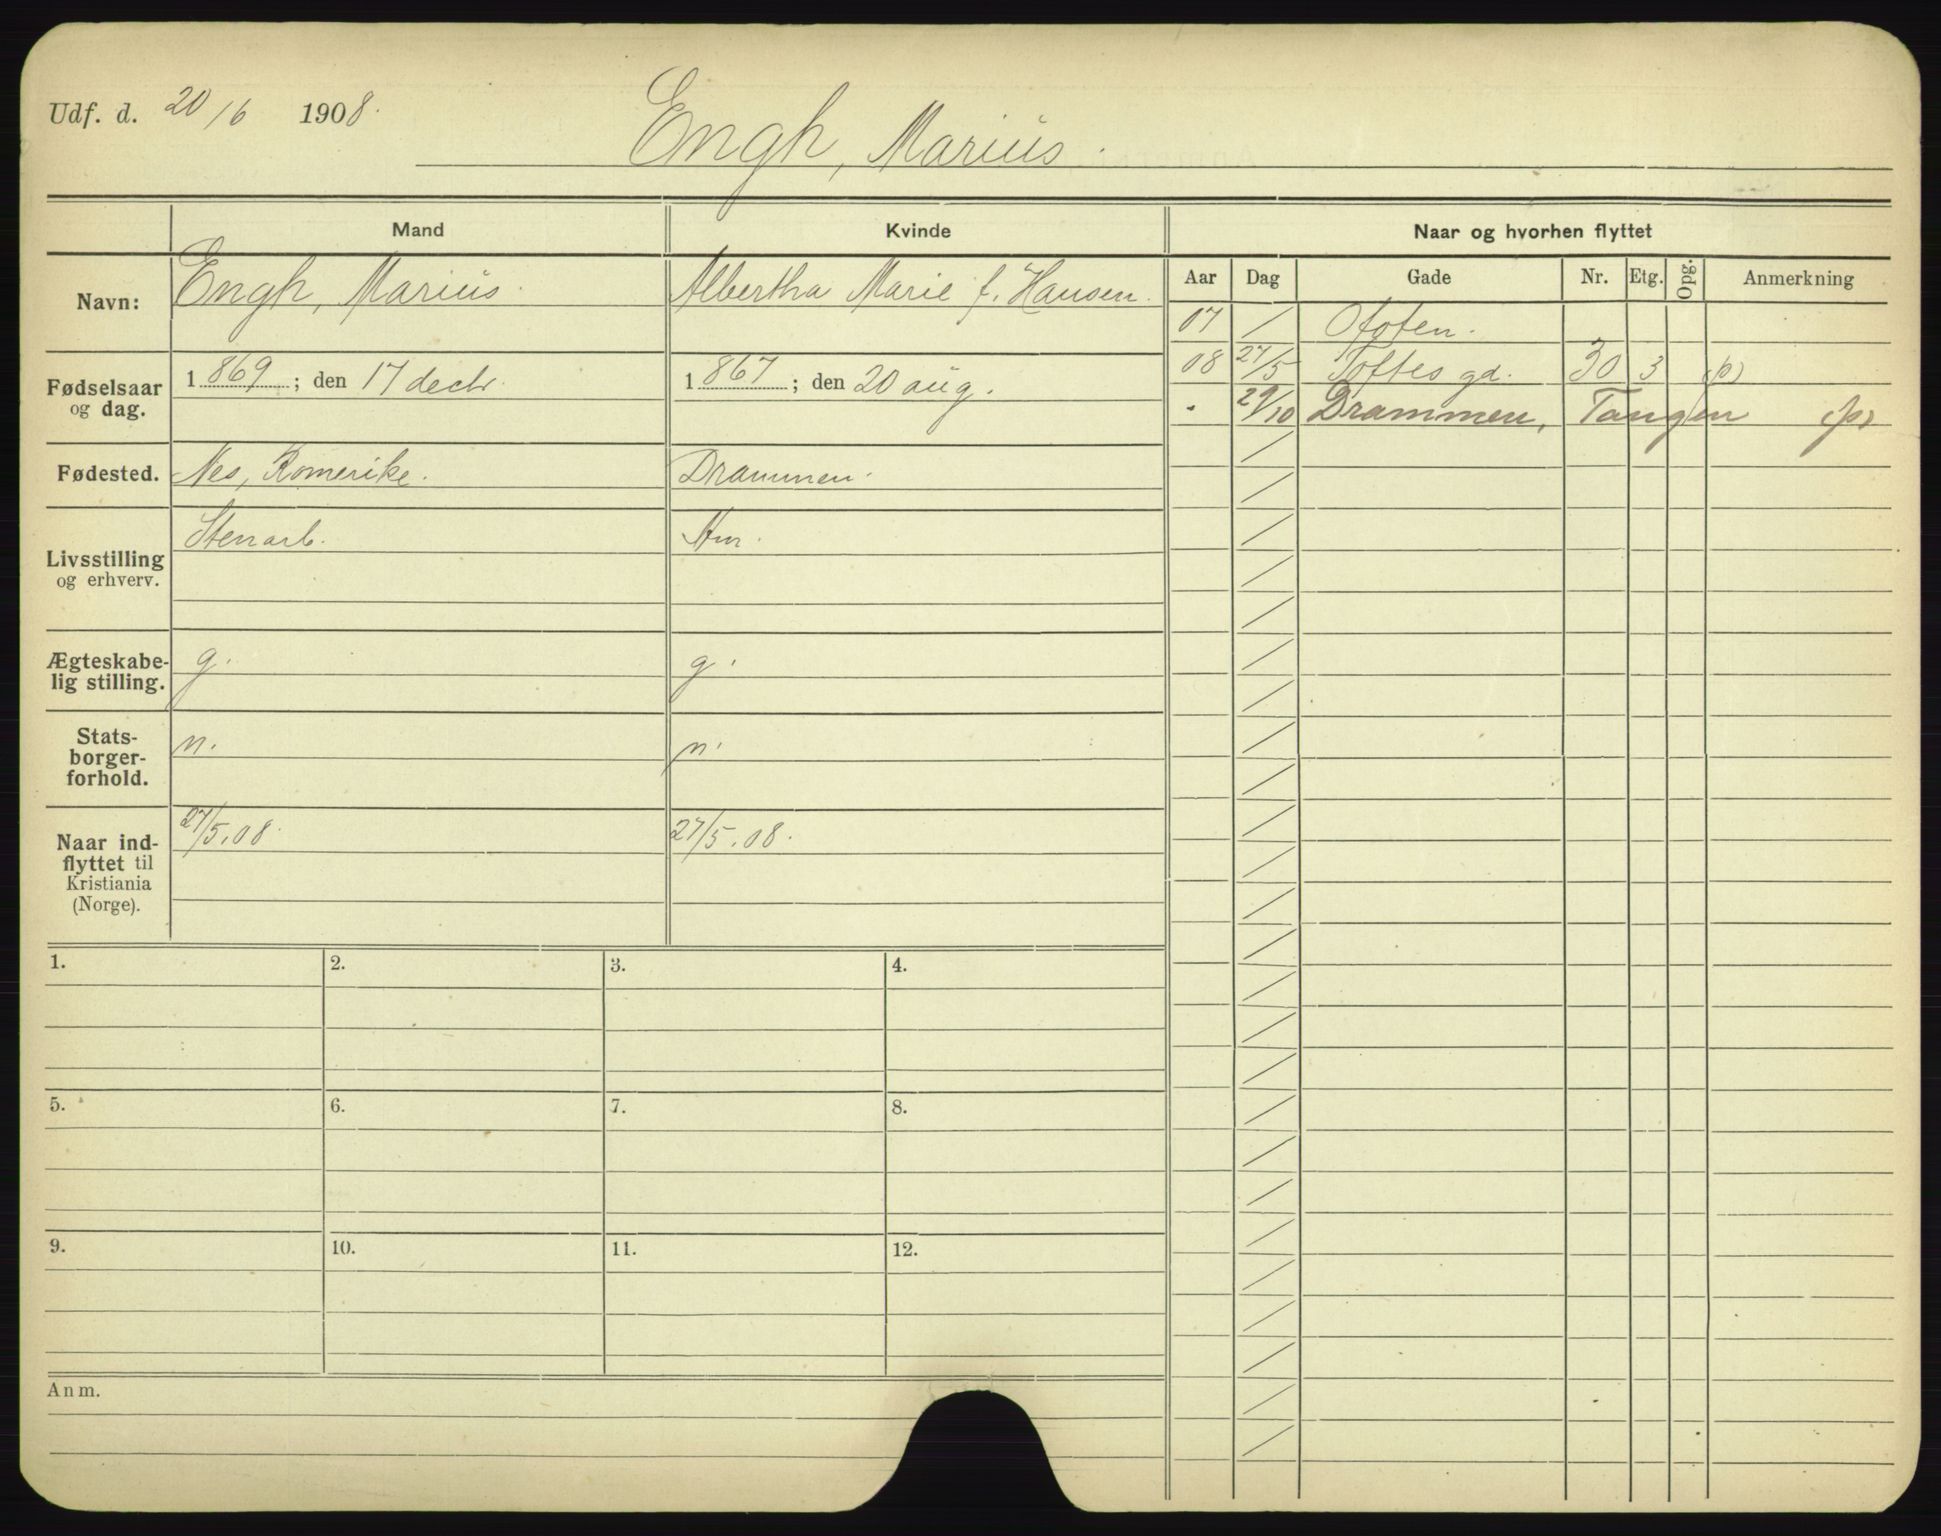 Udf. d. 20/6 1908.
Engh, Marius.
Mand Kvinde Naar og hvorhen flyttet
Aar Dag Gade Nr. Etg. Opg. Anmerkning
Navn: Engh, Marius. Albertha Marie f. Hansen.
07 / Ofoten.
08 27/5 Toftes gd. 30 3 (p)
" 29/10 Drammen, Tangen (p)
Fødselsaar og dag. 1869; den 17 decbr. 1867; den 20 aug.
Fødested. Nes, Romerike. Drammen.
Livsstilling og erhverv. Stenarb. Hm.
Ægteskabe-
lig stilling. g. g.
Stats-
borger-
forhold. n. n.
Naar ind-
flyttet til
Kristiania
(Norge). 27/5.08. 27/5.08.
1. 2. 3. 4.
5. 6. 7. 8.
9. 10. 11. 12.
Anm.